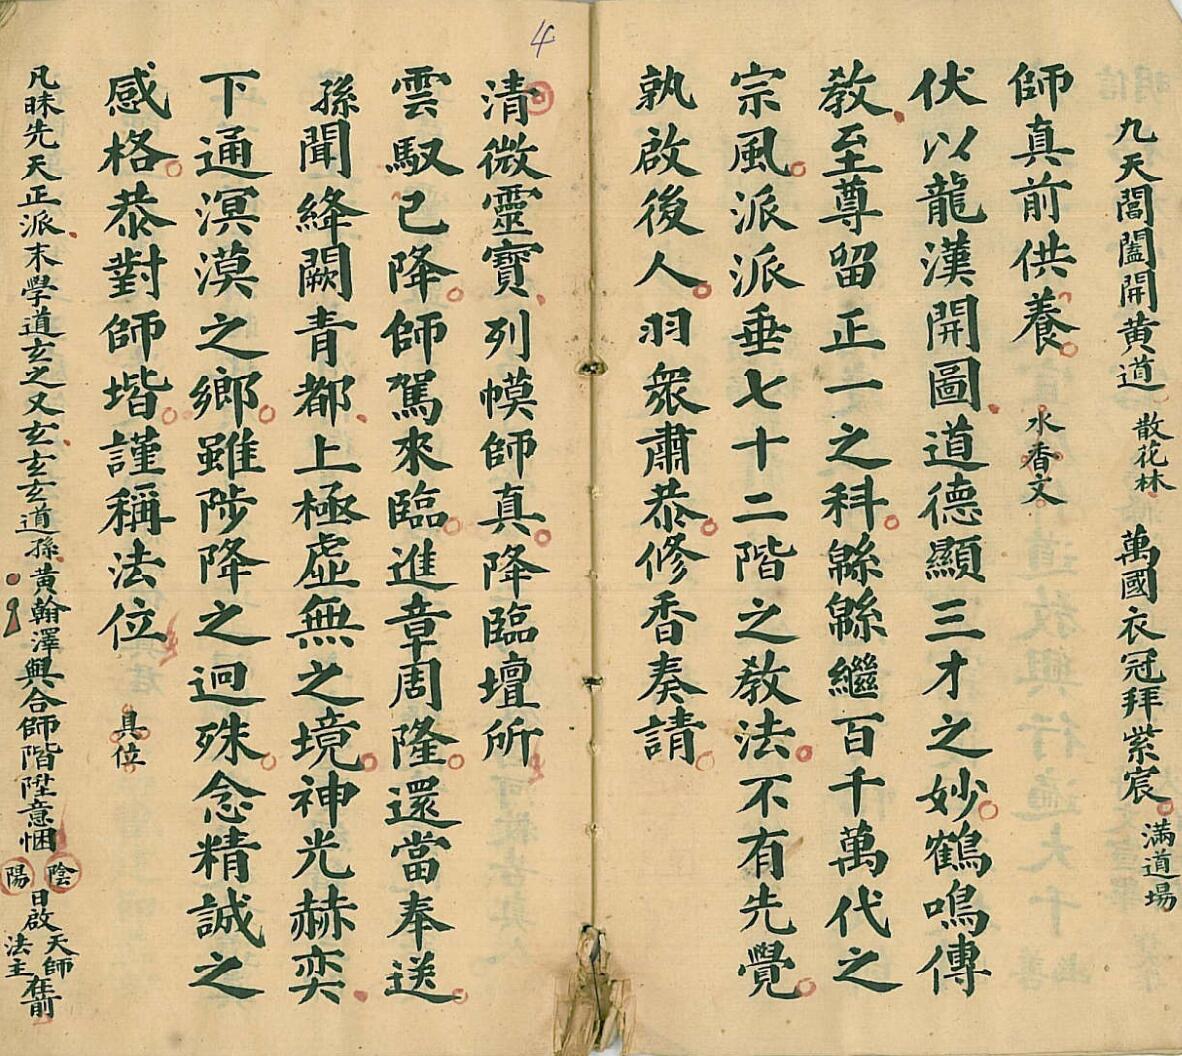 九天閶闔開黃道 散花林 萬國衣冠拜紫宸 滿道塲
師真前供養 水香文
伏以龍漢開圖道德顯三才之妙鶴鳴傳
教至尊留正一之科緜緜繼百千萬代之
宗風派派垂七十二階之教法不有先覺
孰啟後人羽衆肅恭修香奏請
4
清微靈寶列幙師真降臨壇所
雲馭已降師駕來臨進章周隆還當奉送
孫聞絳闕青都上極虛無之境神光赫奕
下通溟漠之鄉雖陟降之迥殊念精誠之
感格恭對師堦謹稱法位 具位
凡昧先天正派末學道玄之又玄玄玄道孫黃翰澤興合師階陞意悃陰陽日啟天師法主在前